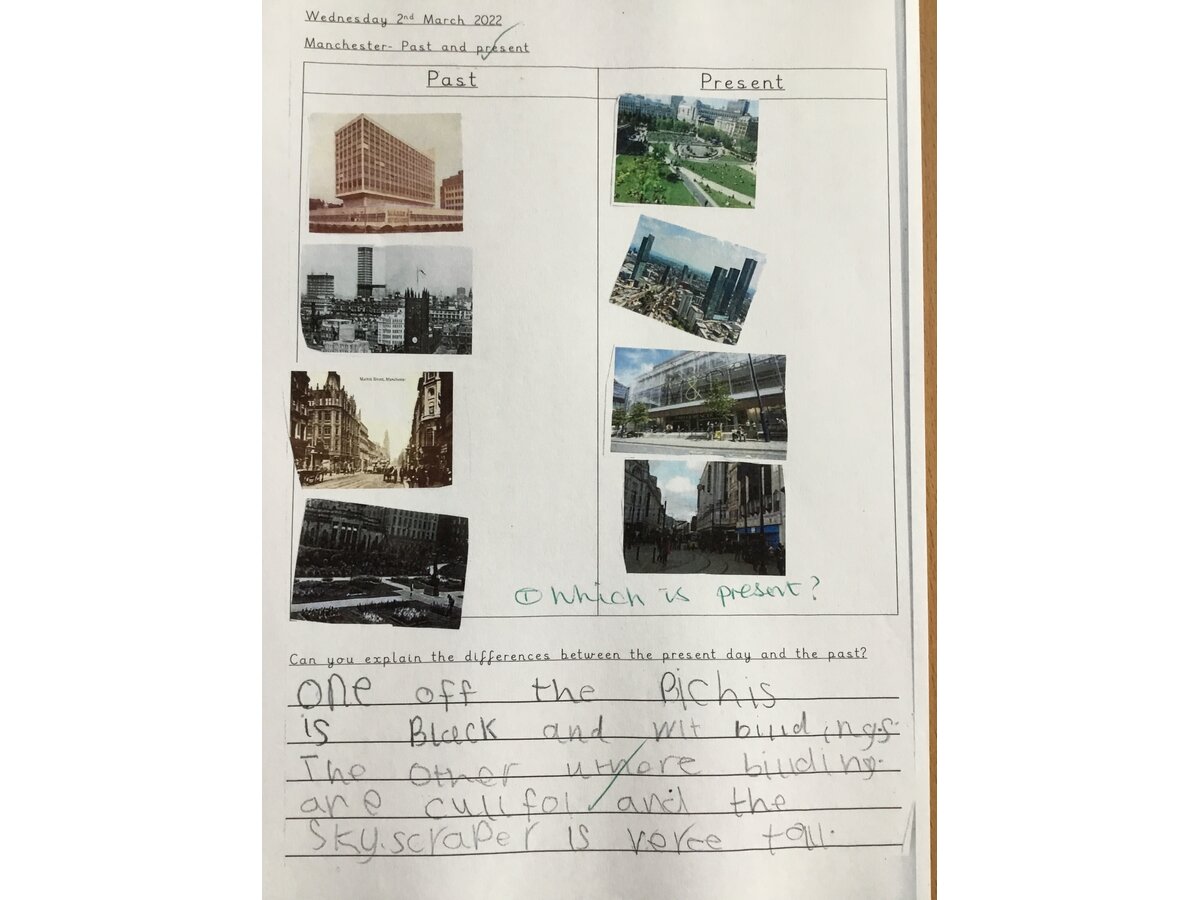 Wednesday 2nd March 2022
Manchester- Past and present
Past
Present
Market Street, Manchester.
&
① Which is present?
Can you explain the differences between the present day and the past?
one off the Pichis
is Black and wit biudings.
The other biuding.
are cullfol and the
Sky.scraper is veree tall.